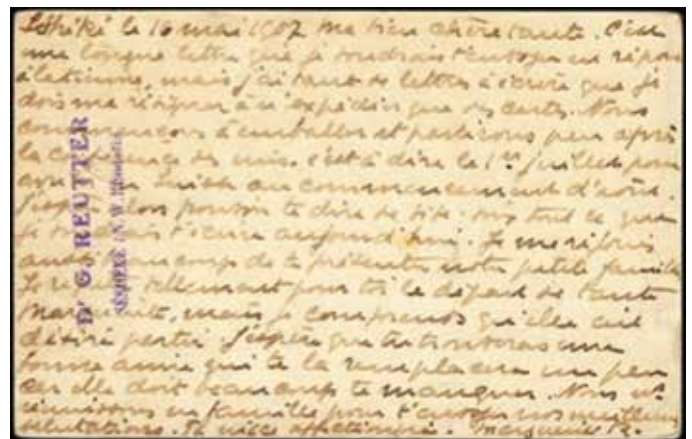 Séshéké le 16 mai 1907 Ma bien chère tante. C'est
une longue lettre que je voudrais t'envoyer en réponse
à la tienne, mais j'ai tant de lettres à écrire que je
dois me résigner à n'expédier que des cartes. Nous
commençons à emballer et partirons peu après
la conférence de mis. c'est à dire le 1er juillet pour
en Suisse au commencement d'août.
pouvoir te dire de vive-voix tout ce que
je voudrais t'écrire aujourd'hui. Je me réjouis
aussi beaucoup de te présenter notre petite famille
Je tellement pour toi le départ de tante
Marguerite, mais je comprends qu'elle ait
désiré partir. J'espère que tu trouveras une
bonne amie qui te la remplacera un peu
car elle doit beaucoup te manquer. Nous ns.
réunissons en famille pour t'envoyer nos meilleures
salutations. Ta nièce affectionnée. Marguerite R.
Dr G. REUTTER
SESHEKE (N.W. Rhodesia)